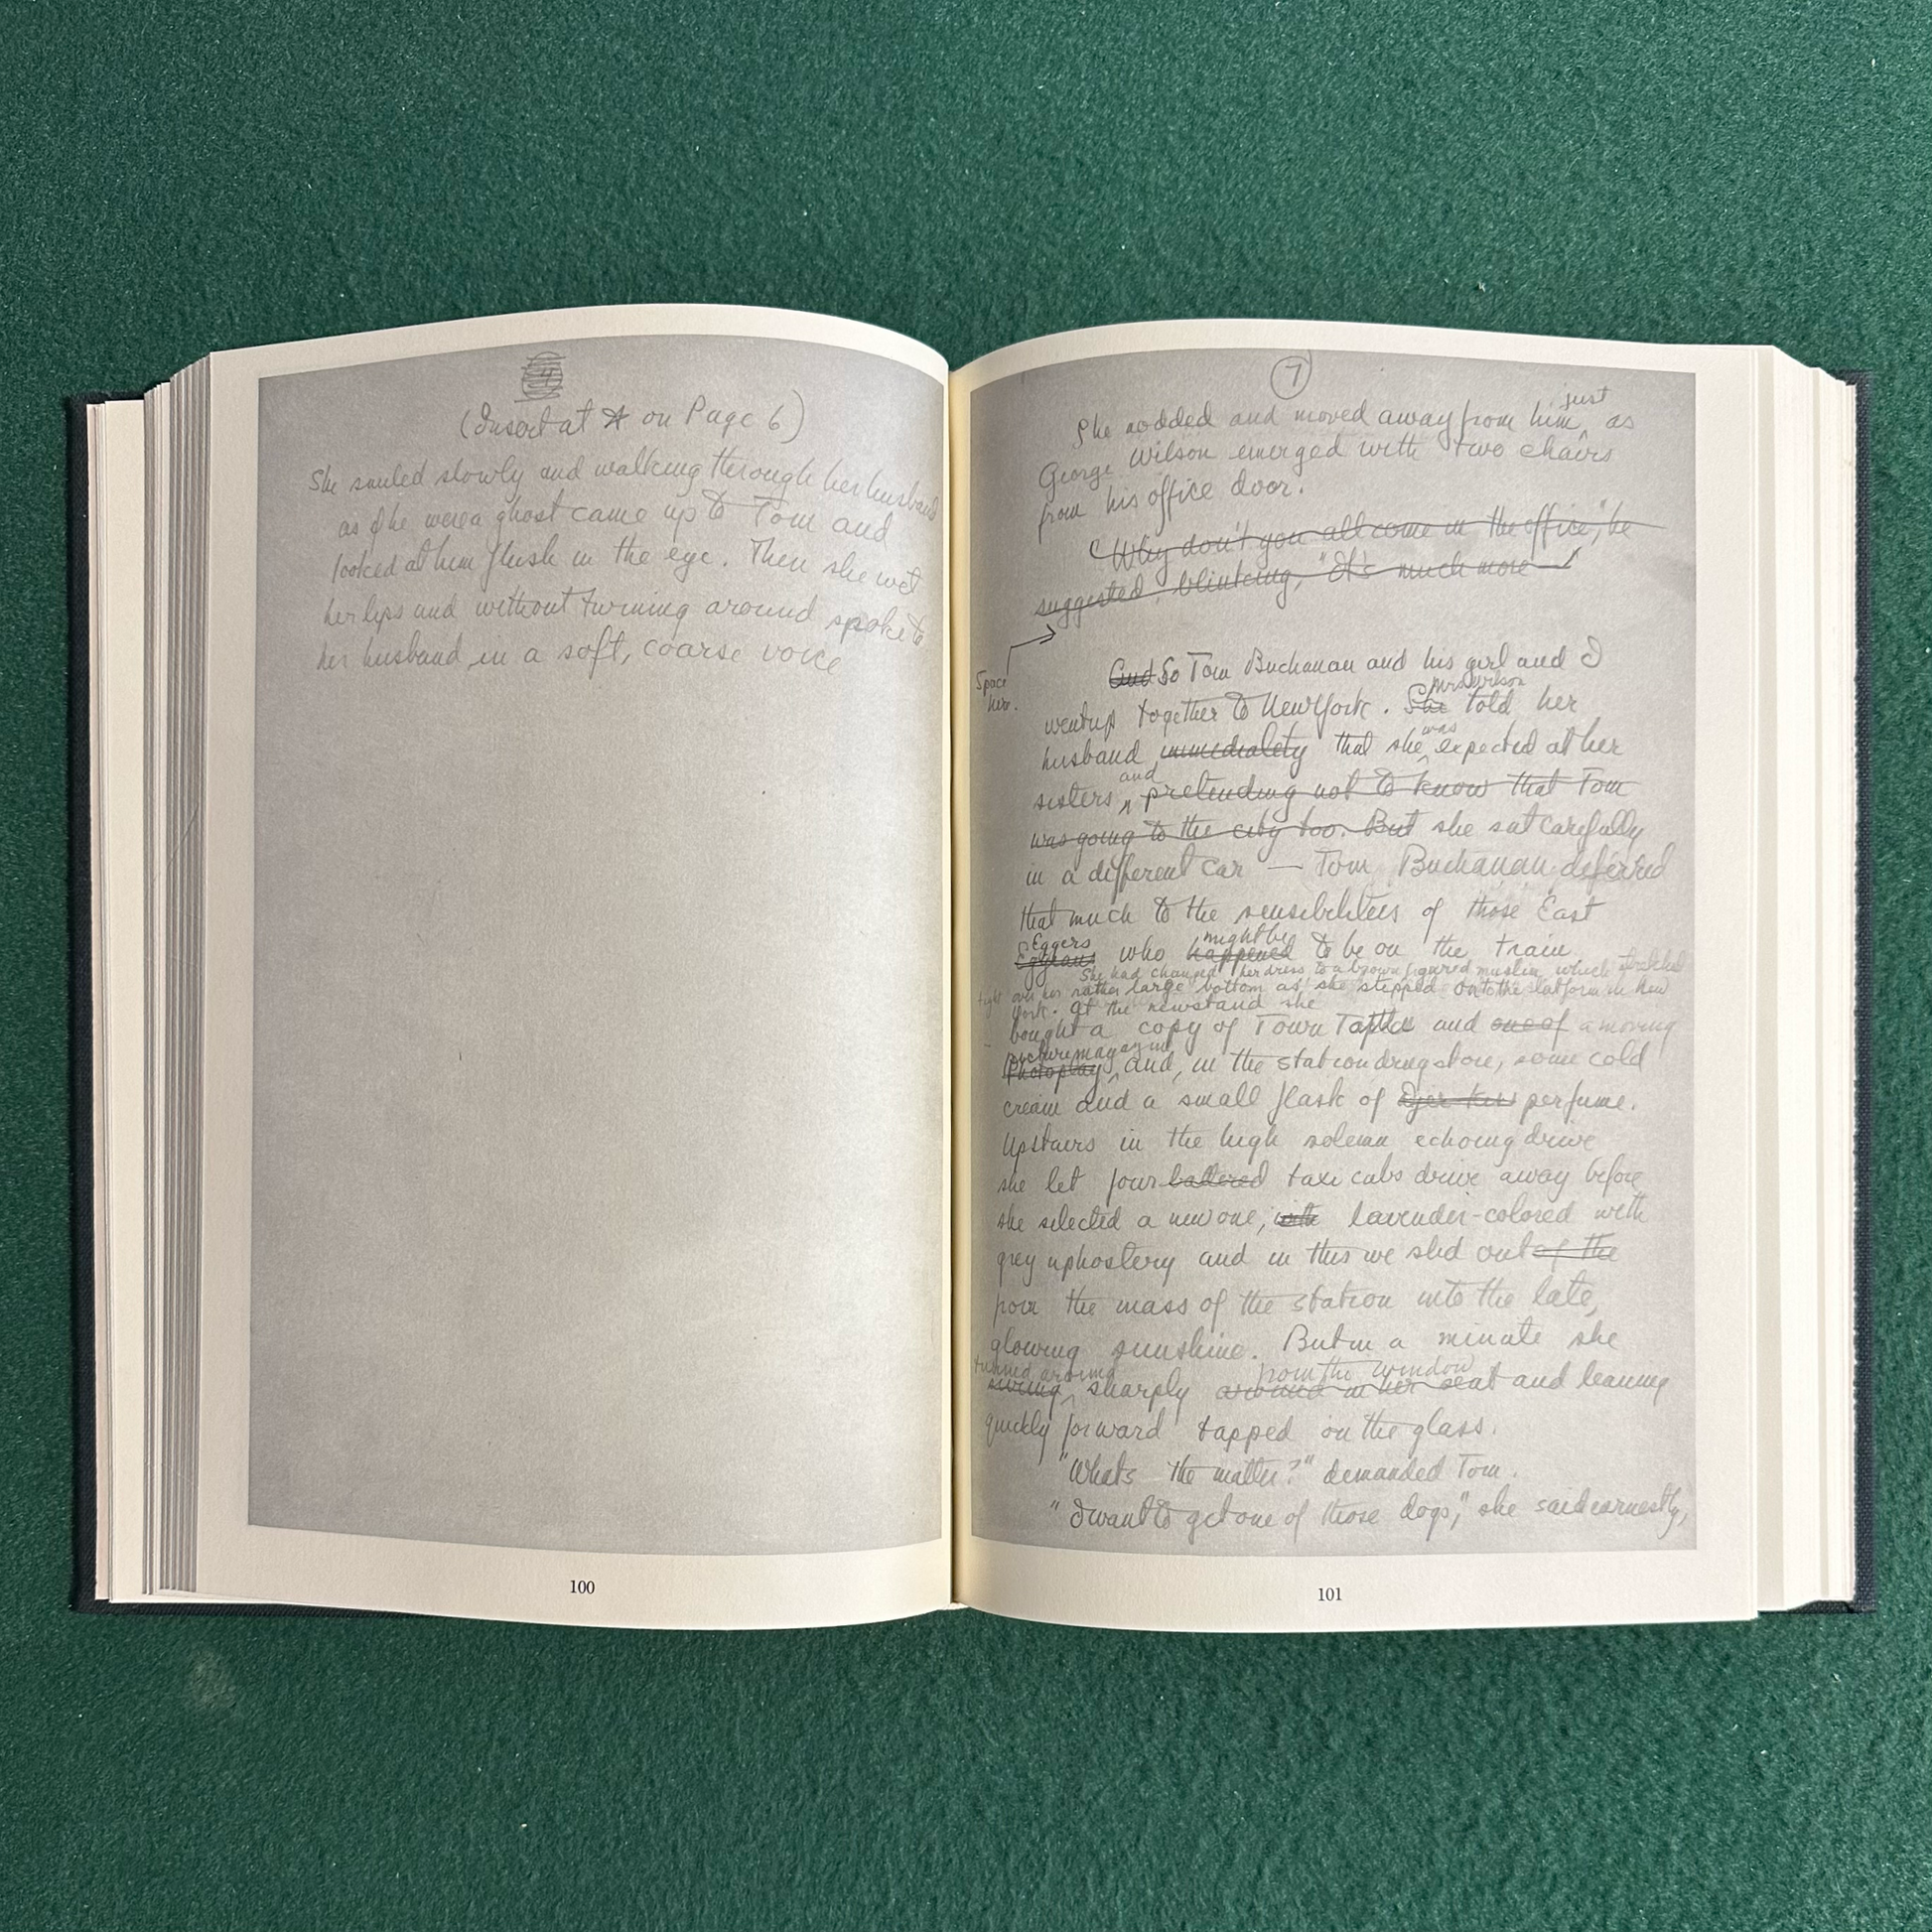 (Insert at * on Page 6)
She smiled slowly and walking through her husband
as if he were a ghost came up to Tom and
looked at him flush in the eye. Then she wet
her lips and without turning around spoke to
her husband in a soft, coarse voice
100
7
just
She nodded and moved away from him, as
George Wilson emerged with two chairs
from his office door.
"Why don't you all come in the office," he
suggested, blinking, "It's much more —"
Space
here.
And So Tom Buchanan and his girl and I
Mrs Wilson
went up together to New York. She told her
was
husband immediately that she expected at her
and
sisters, pretending not to know that Tom
was going to the city too. But she sat carefully
in a different car — Tom Buchanan deferred
that much to the sensibilities of those East
Eggers might be
who happened to be on the train
She had changed her dress to a brown figured muslin which stretched
tight over her rather large bottom as she stepped onto the platform in New
York. At the newstand she
bought a copy of Town Tattle and one of a moving
picture magazine
Photoplay, and, in the station drugstore, some cold
cream and a small flask of perfume.
Upstairs in the high solemn echoing drive
she let four battered taxi cabs drive away before
she selected a new one, with lavender-colored with
grey uphostery and in this we slid out of the
from the mass of the station into the late,
glowing sunshine. But in a minute she
turned around from the window
swung sharply around in her seat and leaning
quickly forward tapped on the glass.
"Whats the matter?" demanded Tom.
"I want to get one of those dogs," she said earnestly,
101